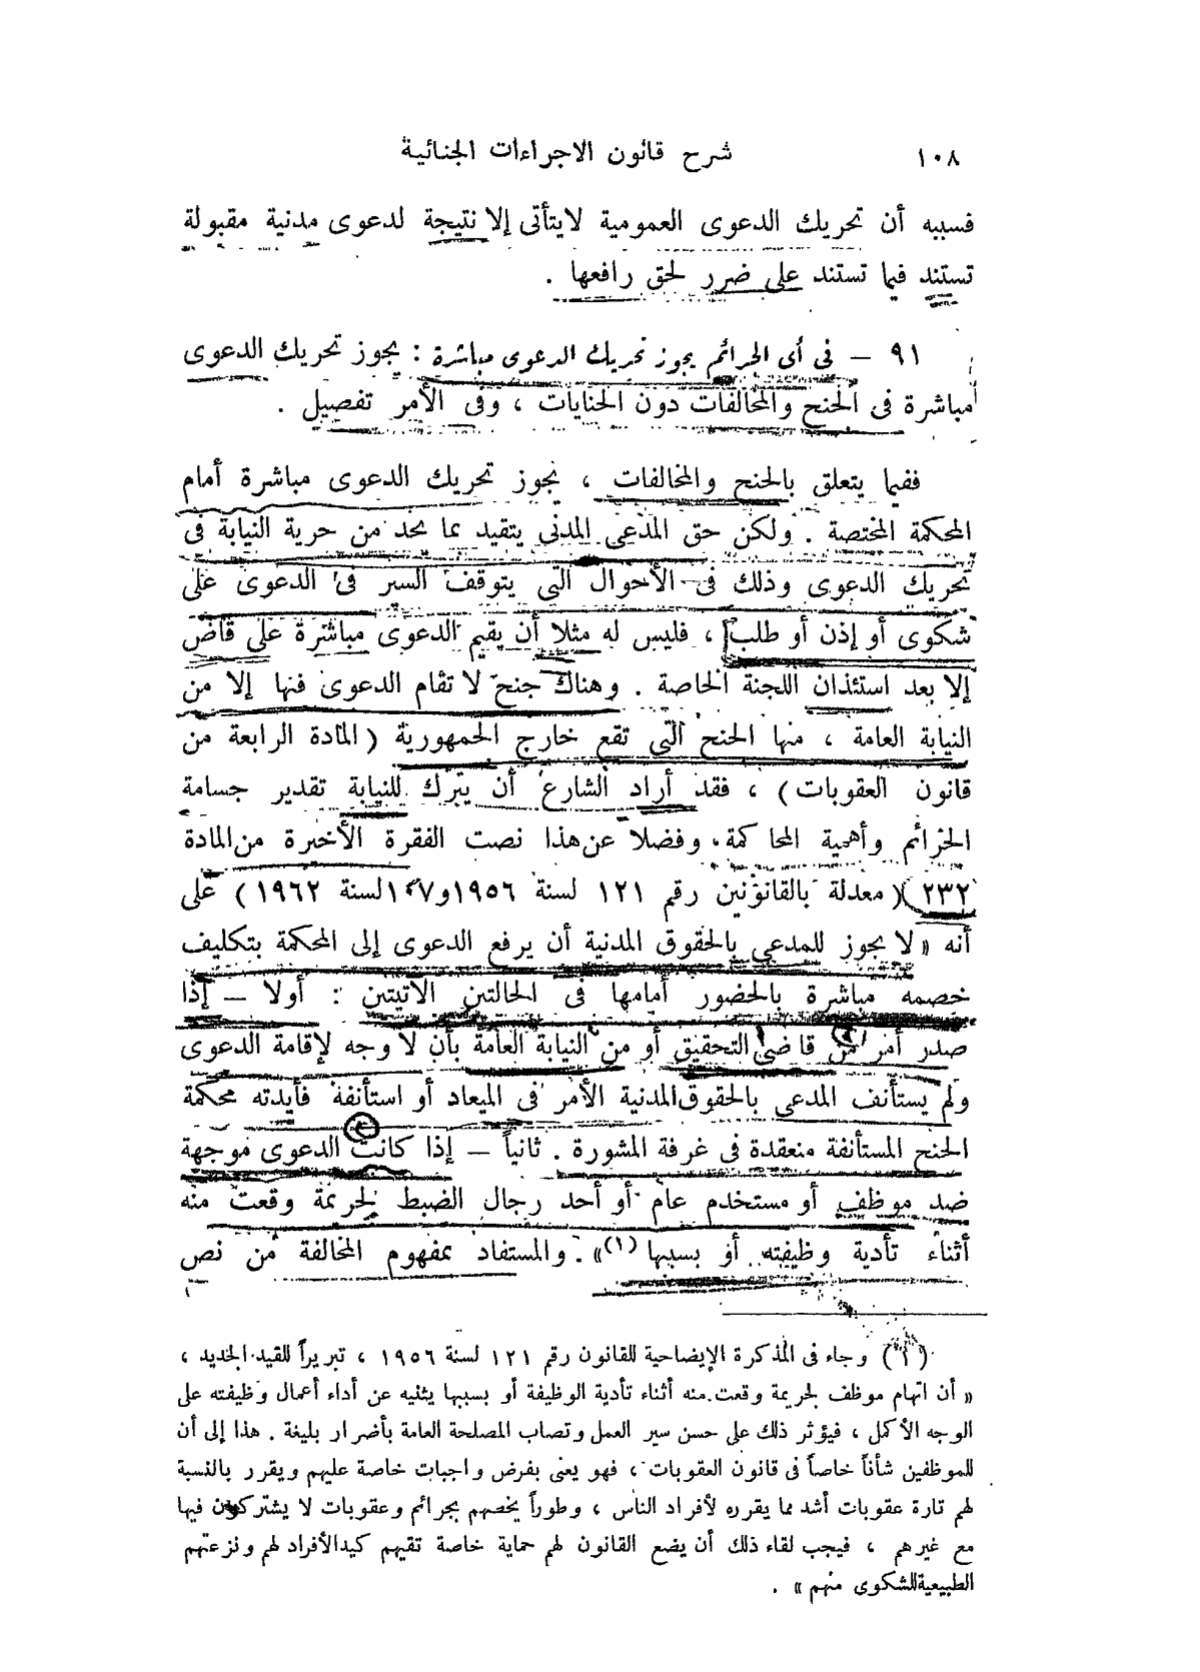 ١٠٨ شرح قانون الاجراءات الجنائية
فسببه أن تحريك الدعوى العمومية لايتأتى إلا نتيجة لدعوى مدنية مقبولة
تستند فيما تستند على ضرر لحق رافعها .
٩١ – فى أى الجرائم يجوز تحريك الدعوى مباشرة : يجوز تحريك الدعوى
مباشرة فى الجنح والمخالفات دون الجنايات ، وفى الأمر تفصيل .
ففيما يتعلق بالجنح والمخالفات ، يجوز تحريك الدعوى مباشرة أمام
المحكمة المختصة . ولكن حق المدعى المدنى يتقيد بما يحد من حرية النيابة فى
تحريك الدعوى وذلك فى الأحوال التى يتوقف السير فى الدعوى على
شكوى أو إذن أو طلب ، فليس له مثلا أن يقيم الدعوى مباشرة على قاض
إلا بعد استئذان اللجنة الخاصة . وهناك جنح لا تقام الدعوى فيها إلا من
النيابة العامة ، منها الجنح التى تقع خارج الجمهورية ( المادة الرابعة من
قانون العقوبات ) ، فقد أراد الشارع أن يترك للنيابة تقدير جسامة
الجرائم وأهمية المحاكمة . وفضلا عن هذا نصت الفقرة الأخيرة من المادة
٢٣٢ ( معدلة بالقانونين رقم ١٢١ لسنة ١٩٥٦ و١٠٧ لسنة ١٩٦٢ ) على
أنه « لا يجوز للمدعى بالحقوق المدنية أن يرفع الدعوى إلى المحكمة بتكليف
خصمه مباشرة بالحضور أمامها فى الحالتين الآتيتين : أولا – إذا
صدر أمر من قاضى التحقيق أو من النيابة العامة بأن لا وجه لإقامة الدعوى
ولم يستأنف المدعى بالحقوق المدنية الأمر فى الميعاد أو استأنفه فأيدته محكمة
الجنح المستأنفة منعقدة فى غرفة المشورة . ثانياً – إذا كانت الدعوى موجهة
ضد موظف أو مستخدم عام أو أحد رجال الضبط لجريمة وقعت منه
أثناء تأدية وظيفته أو بسببها (١) » . والمستفاد بمفهوم المخالفة من نص
(١) وجاء فى المذكرة الإيضاحية للقانون رقم ١٢١ لسنة ١٩٥٦ ، تبريراً للقيد الجديد ،
« أن اتهام موظف لجريمة وقعت منه أثناء تأدية الوظيفة أو بسببها يثنيه عن أداء أعمال وظيفته على
الوجه الأكمل ، فيؤثر ذلك على حسن سير العمل وتصاب المصلحة العامة بأضرار بليغة . هذا إلى أن
للموظفين شأناً خاصاً فى قانون العقوبات ، فهو يعنى بفرض واجبات خاصة عليهم ويقرر بالنسبة
لهم تارة عقوبات أشد مما يقرره لأفراد الناس ، وطوراً يخصهم بجرائم وعقوبات لا يشتركون فيها
مع غيرهم ، فيجب لقاء ذلك أن يضع القانون لهم حماية خاصة تقيهم كيد الأفراد لهم ونزعتهم
الطبيعية للشكوى منهم » .